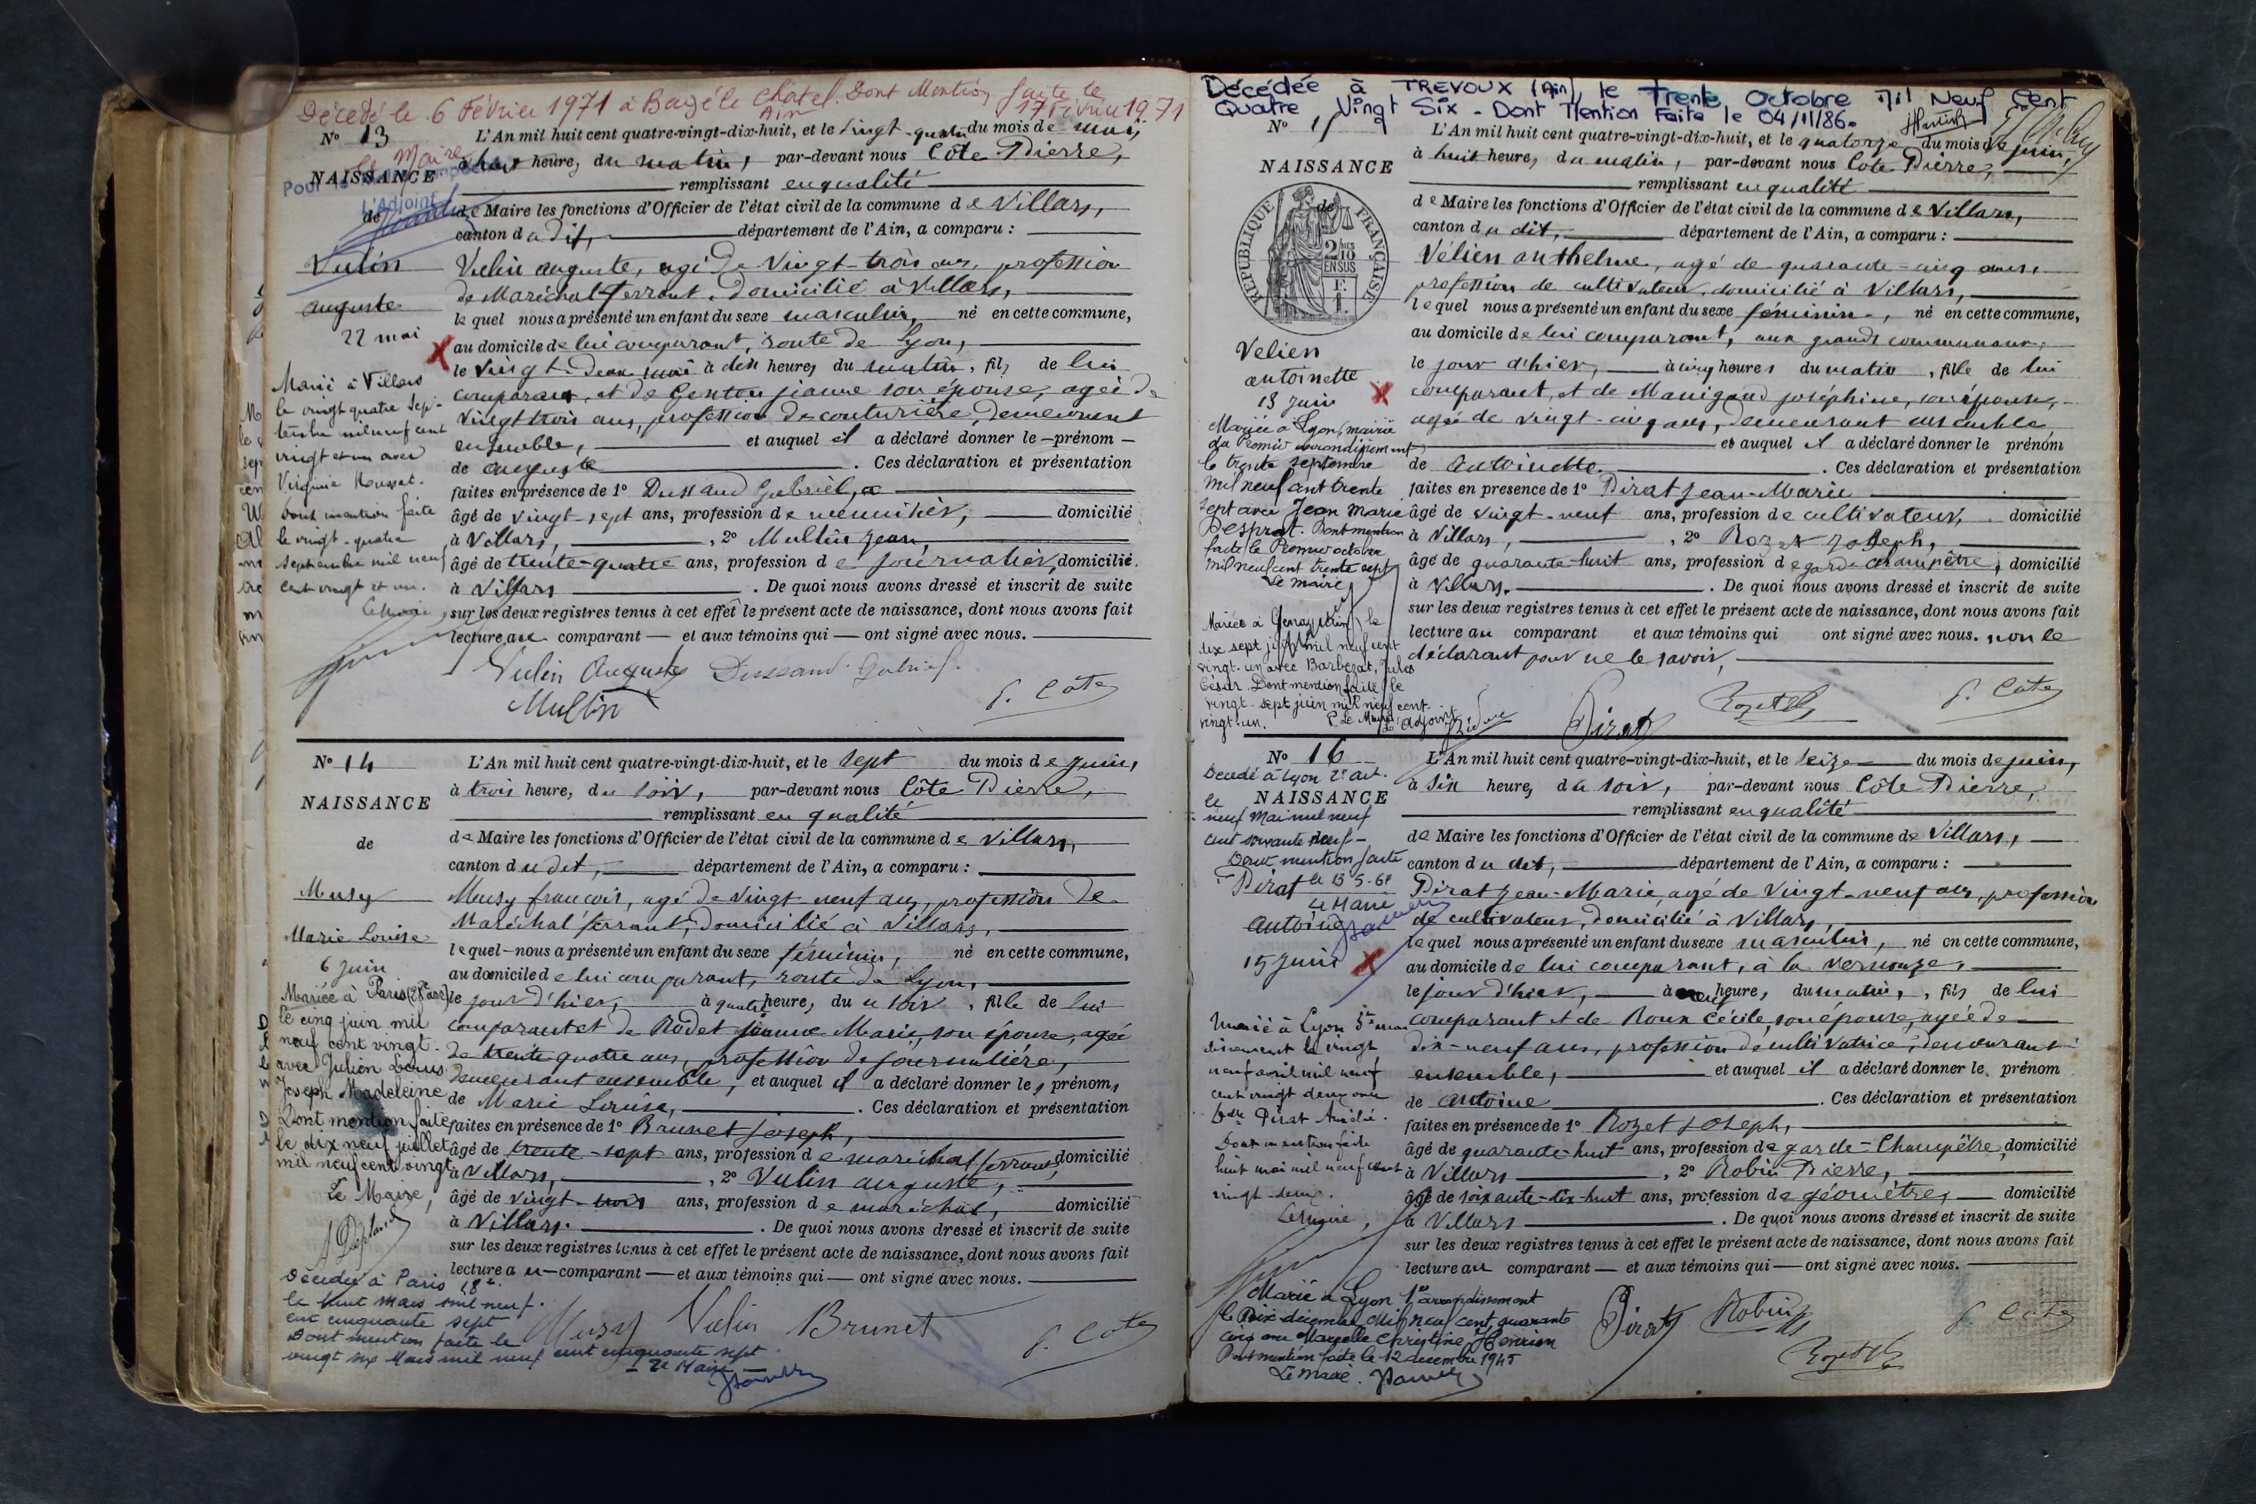 Décédé le 6 Février 1971 à Bagé le Chatel. Dont Mention faite le
Ain 17 Février 1971
N° 13
L'An mil huit cent quatre-vingt-dix-huit, et le vingt-quatre du mois de mai,
Le Maire
à huit heure, du matin, par-devant nous Côte Pierre,
NAISSANCE
remplissant en qualité
L'Adjoint
de
de Maire les fonctions d'Officier de l'état civil de la commune de Villars,
canton du dit, département de l'Ain, a comparu :
Vulin
Vulin auguste, agé de Vingt-trois ans, profession
de Maréchal ferrant, domicilié à Villars,
auguste
lequel nous a présenté un enfant du sexe masculin, né en cette commune,
22 mai
au domicile de lui comparant, route de Lyon,
le vingt-deux mai à dix heures du matin, fils de lui
comparant, et de Genton jeanne son épouse, agée de
vingt trois ans, profession de couturière, demeurant
ensemble, et auquel il a déclaré donner le prénom
de auguste. Ces déclaration et présentation
faites en présence de 1° Dussaud Gabriel,
âgé de vingt-sept ans, profession de menuisier, domicilié
à Villars, 2° Mullin Jean,
âgé de trente-quatre ans, profession de journalier, domicilié
à Villars. De quoi nous avons dressé et inscrit de suite
sur les deux registres tenus à cet effet le présent acte de naissance, dont nous avons fait
lecture au comparant et aux témoins qui ont signé avec nous.
Marié à Villars
le vingt quatre Sep-
tembre mil neuf cent
vingt et un avec
Virginie
Dont mention faite
le vingt-quatre
septembre mil neuf
cent vingt et un.
Le Maire,
Vulin Auguste Dussaud Gabriel
Mullin
P. Côte
N° 14
L'An mil huit cent quatre-vingt-dix-huit, et le sept du mois de juin,
à trois heure, du soir, par-devant nous Côte Pierre,
NAISSANCE
remplissant en qualité
de
de Maire les fonctions d'Officier de l'état civil de la commune de Villars,
canton du dit, département de l'Ain, a comparu :
Musy
Musy francois, agé de vingt-neuf ans, profession de
Maréchal ferrant, domicilié à Villars,
Marie Louise
lequel nous a présenté un enfant du sexe féminin, né en cette commune,
6 juin
au domicile de lui comparant, route de Lyon,
le jour d'hier, à quatre heure, du soir, fille de lui
comparant et de Rodet jeanne Marie, son épouse, agée
de trente-quatre ans, profession de journalière,
demeurant ensemble, et auquel il a déclaré donner les prénoms
de Marie Louise, Ces déclaration et présentation
faites en présence de 1° Brunet Joseph,
âgé de trente-sept ans, profession de maréchal ferrant, domicilié
à Villars, 2° Vulin auguste,
âgé de vingt-trois ans, profession de maréchal, domicilié
à Villars. De quoi nous avons dressé et inscrit de suite
sur les deux registres tenus à cet effet le présent acte de naissance, dont nous avons fait
lecture au comparant et aux témoins qui ont signé avec nous.
Mariée à Paris
le cinq juin mil
neuf cent vingt
avec Julien Louis
Joseph Madeleine
Dont mention faite
le dix neuf juillet
mil neuf cent vingt
Le Maire,
Décédée à Paris 18e
le huit mars mil neuf
cent cinquante sept
Dont mention faite le
vingt six Mars mil neuf cent cinquante sept.
Le Maire
Musy Vulin Brunet
P. Côte
Décédée à TREVOUX (Ain), le trente Octobre Mil Neuf Cent
Quatre Vingt Six - Dont Mention Faite le 04/11/86.
N° 15
L'An mil huit cent quatre-vingt-dix-huit, et le quatorze du mois de juin,
à huit heure, du matin, par-devant nous Côte Pierre,
NAISSANCE
remplissant en qualité
RÉPUBLIQUE FRANÇAISE
2/10 EN SUS
de
de Maire les fonctions d'Officier de l'état civil de la commune de Villars,
canton du dit, département de l'Ain, a comparu :
Vélien anthelme, agé de quarante-cinq ans,
profession de cultivateur, domicilié à Villars,
lequel nous a présenté un enfant du sexe féminin, né en cette commune,
au domicile de lui comparant, aux grands communaux,
Velien
antoinette
13 juin
le jour d'hier, à cinq heures du matin, fille de lui
comparant, et de Manigand joséphine, son épouse,
agée de vingt-cinq ans, demeurant ensemble,
et auquel il a déclaré donner le prénom
de antoinette. Ces déclaration et présentation
faites en présence de 1° Pirat Jean-Marie
âgé de vingt-neuf ans, profession de cultivateur, domicilié
à Villars, 2° Rozet Joseph,
âgé de quarante-huit ans, profession de garde champêtre, domicilié
à Villars. De quoi nous avons dressé et inscrit de suite
sur les deux registres tenus à cet effet le présent acte de naissance, dont nous avons fait
lecture au comparant et aux témoins qui ont signé avec nous. non le
déclarant pour ne le savoir,
Mariée à Lyon, mairie
du Premier arrondissement
le trente septembre
mil neuf cent trente
sept avec Jean Marie
Desprat. Dont mention
faite le Premier octobre
mil neuf cent trente sept
Le maire
Mariée à le
dix sept juin mil neuf cent
vingt-un avec Barbezat, Jules
César. Dont mention faite le
vingt-sept juin mil neuf cent
vingt-un. P. Le Maire
L'adjoint
Pirat
P. Côte
N° 16
L'An mil huit cent quatre-vingt-dix-huit, et le seize du mois de juin,
à six heure, du soir, par-devant nous Côte Pierre,
Décédé à Lyon 2e arr.
le
NAISSANCE
remplissant en qualité
neuf Mai mil neuf
cent soixante neuf
Dont mention faite
le 13-5-69
Le Maire
de Maire les fonctions d'Officier de l'état civil de la commune de Villars,
canton du dit, département de l'Ain, a comparu :
Pirat
Pirat Jean-Marie, agé de vingt-neuf ans, profession
antoine
de cultivateur, domicilié à Villars,
lequel nous a présenté un enfant du sexe masculin, né en cette commune,
15 juin
au domicile de lui comparant, à la
le jour d'hier, à heure, du matin, fils de lui
comparant et de Roux Cécile, son épouse, agée de
dix-neuf ans, profession de cultivatrice, demeurant
ensemble, et auquel il a déclaré donner le prénom
de antoine. Ces déclaration et présentation
faites en présence de 1° Rozet Joseph,
âgé de quarante-huit ans, profession de garde-Champêtre, domicilié
à Villars, 2° Robin Pierre,
âgé de soixante-dix-huit ans, profession de géomètre, domicilié
à Villars. De quoi nous avons dressé et inscrit de suite
sur les deux registres tenus à cet effet le présent acte de naissance, dont nous avons fait
lecture au comparant et aux témoins qui ont signé avec nous.
Marié à Lyon
le vingt
neuf avril mil neuf
cent vingt deux avec
Pirat Amélie.
Dont mention faite
huit mai mil neuf cent
vingt-deux.
Le Maire,
Marié à Lyon 1er arrondissement
le dix décembre Mil neuf cent quarante
cinq avec Marcelle Christine Henrion
Dont mention faite le 12 décembre 1945
Le Maire.
Pirat Robin
P. Côte